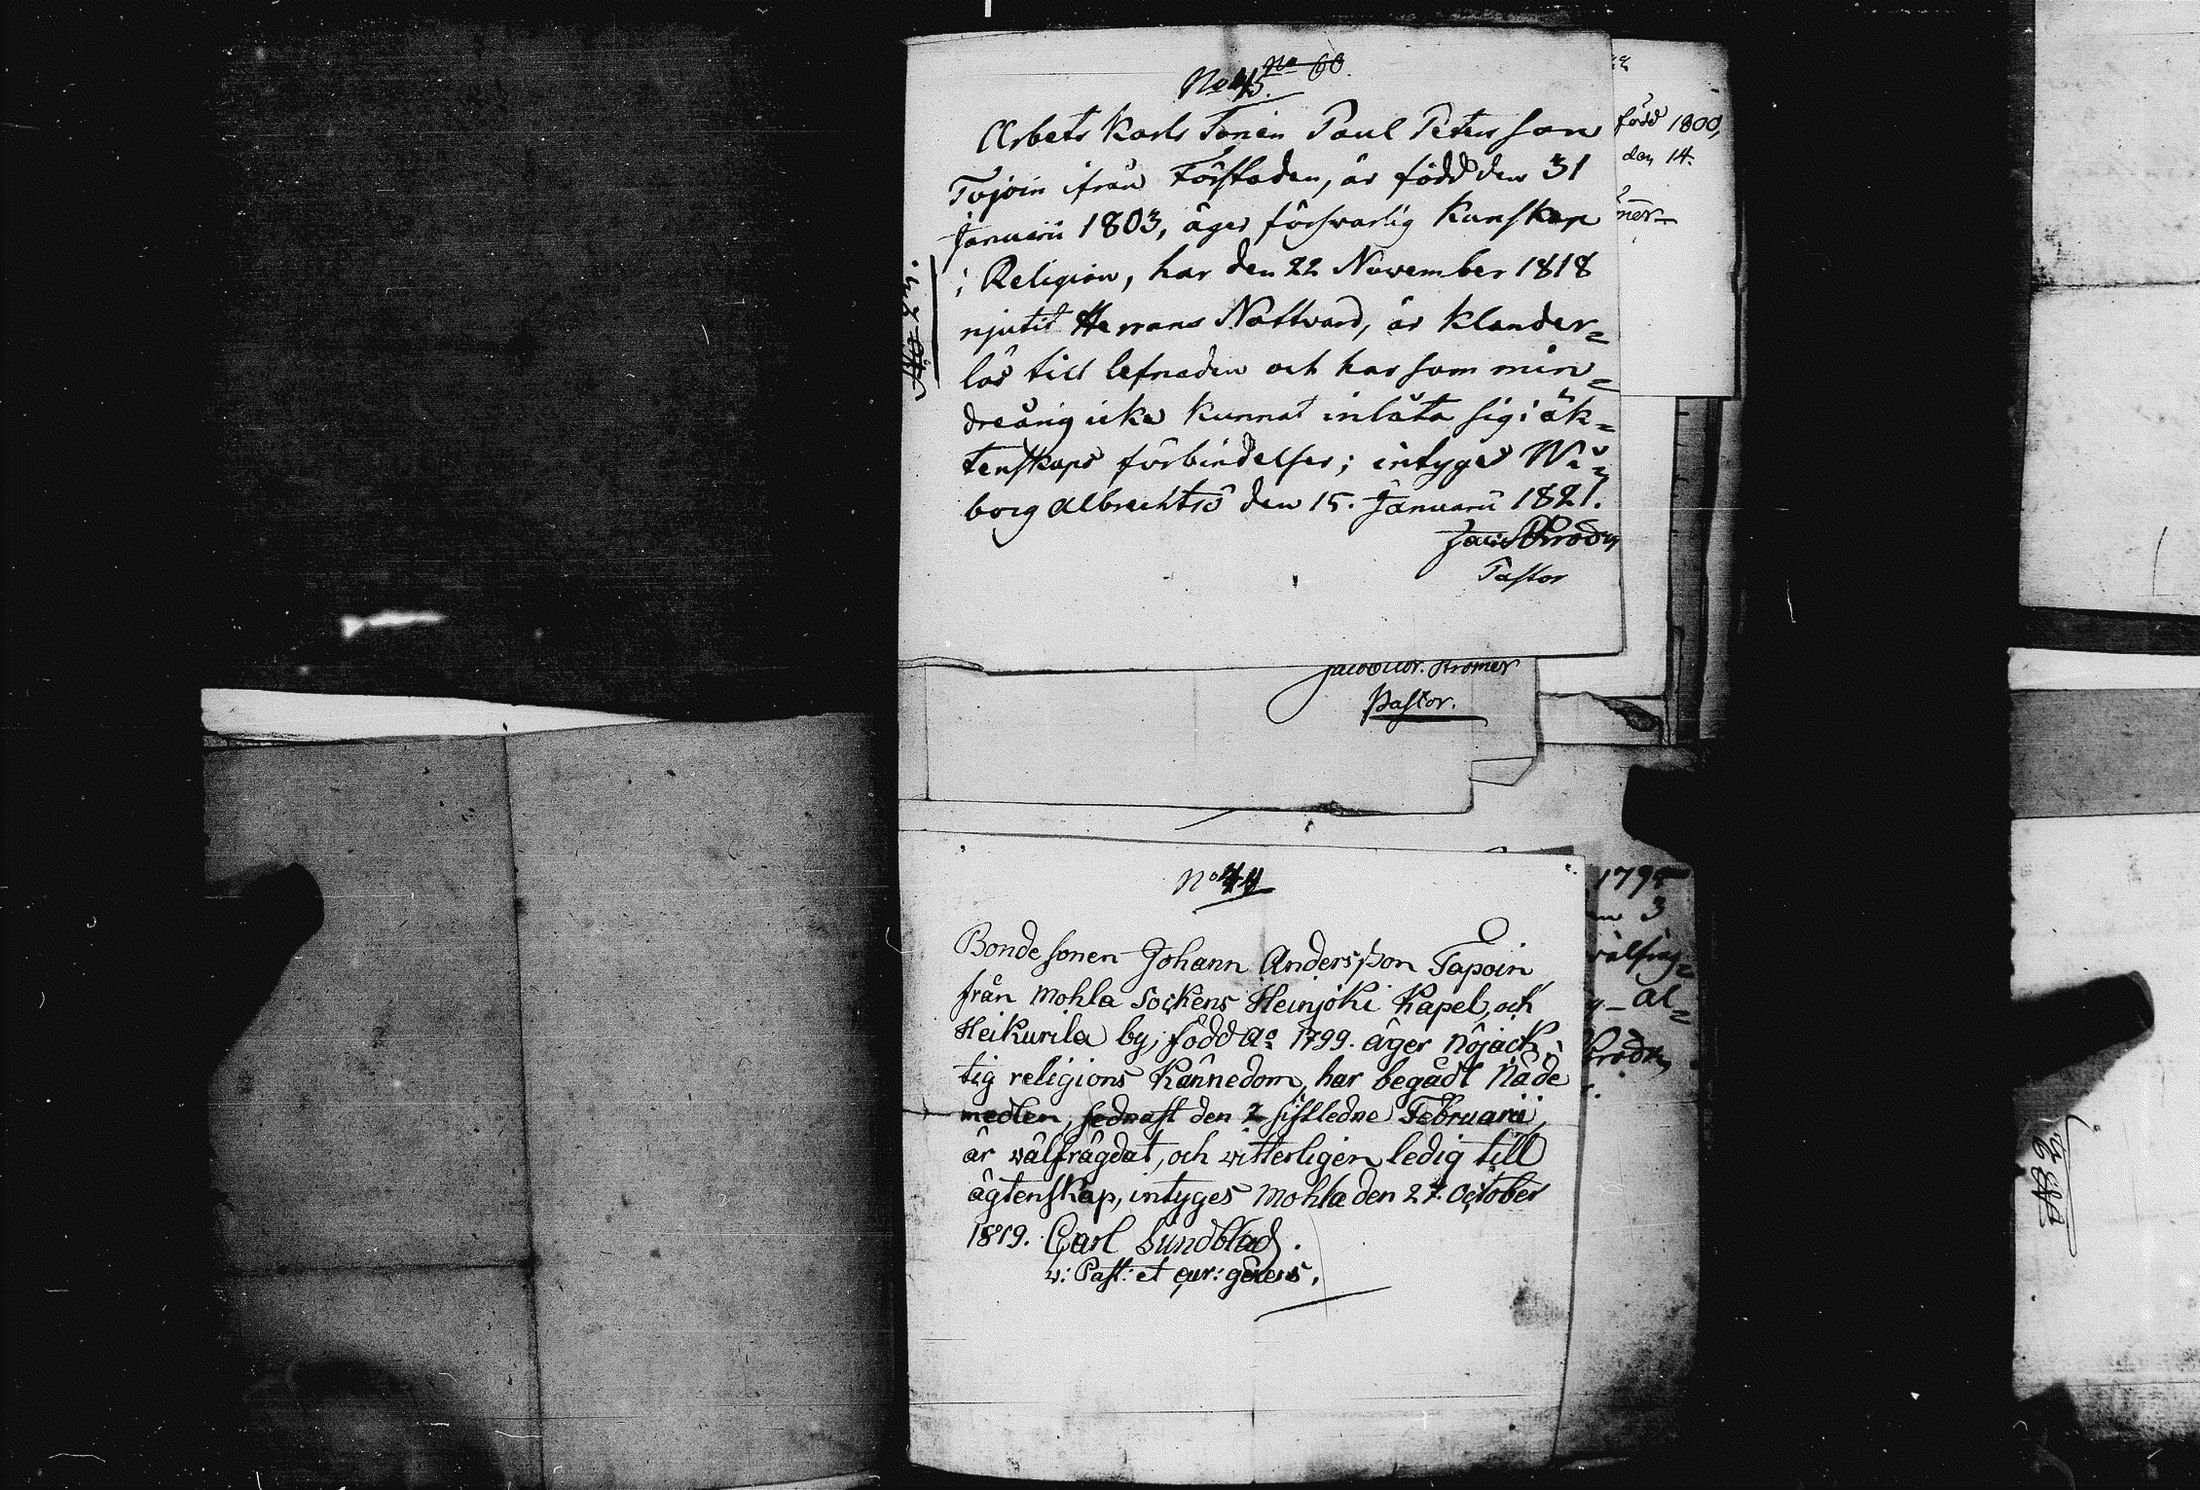 No 45. No 60.
Arbets Karls Sonen Paul Petersson
Tojoin ifrån Förstaden, är född den 31
Januarii 1803, äger försvarlig Kunskap
i Religion, har den 22 November 1818
njutit Herrans Nattward, är klander=
lös till lefnaden och har som min=
dreårig icke kunnat inlåta sig i äk=
tenskaps förbindelser; intygas Wi=
borg Albrechtsö den 15. Januarii 1821.
Pastor
född 1800,
den 14.
Strömer
Pastor.
No 44
Bonde sonen Johann Andersson Tapoin
från Mohla Sockens Heinjoki Kapel, och
Heikurila by, född Ao 1799. äger nöjack=
tig religions Kännedom, har begådt Nåde
medlen, sednast den 2 sistledne Februarii,
är wälfrägdat, och witterligen ledig till
ägtenskap, intyges Mohla den 27. October
1819. Carl Sundblad.
v: Past: et cur: gerens.
1795
3
al=